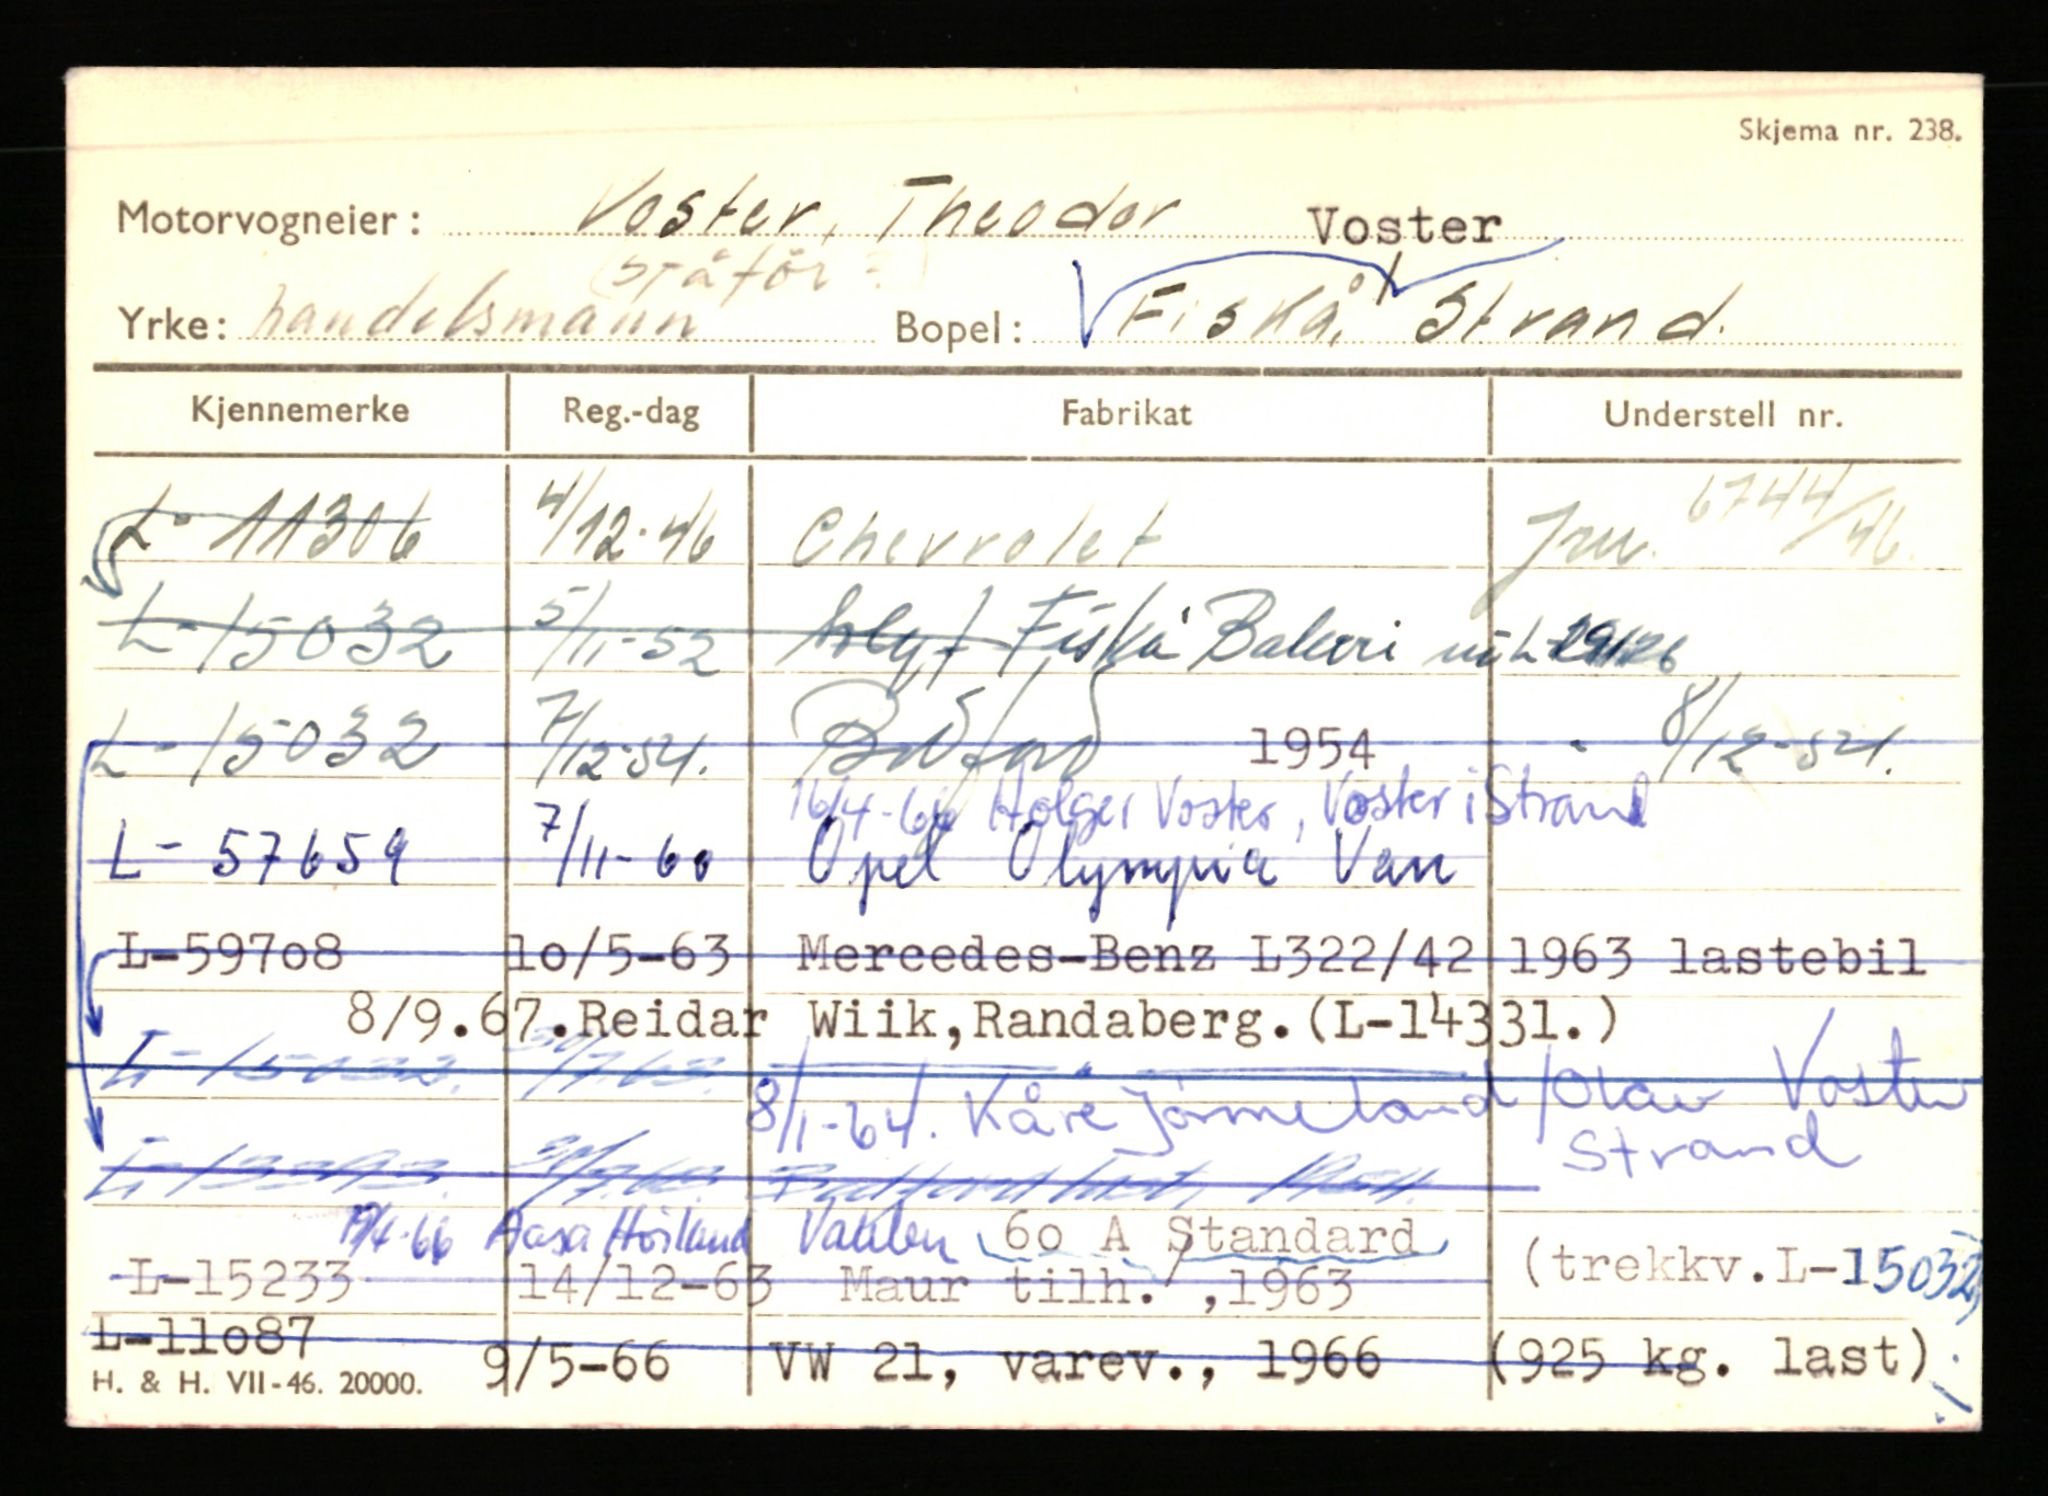 Skjema nr. 238.
Motorvogneier: Voster, Theodor Voster
Yrke: handelsmann Bopel: Fiskå, Strand.
Kjennemerke Reg.-dag Fabrikat Understell nr.
L- 11306 4/12-46 Chevrolet Jnr. 6744/46.
L-15032 5/11-52 Fiskå Bakeri nå L-
L-15032 7/12-54. Bedford 1954 - 8/12-54.
16/4-66 Holger Voster, Voster i Strand
L- 57659 7/11-60 Opel Olympia Van
L-59708 10/5-63 Mercedes-Benz L322/42 1963 lastebil
8/9.67.Reidar Wiik,Randaberg.(L-14331.)
L-15032. 30/7.63.
8/1-64. Kåre Jørmeland / Olav Voster
Strand
30/7.63. Bedford last, 1954.
19/4-66 Aasa Høiland Vaulen 60 A Standard
L-15233 14/12-63 Maur tilh. ,1963 (trekkv.L-15032)
L-11087 9/5-66 VW 21, varev., 1966 (925 kg. last)
H. & H. VII-46. 20000.